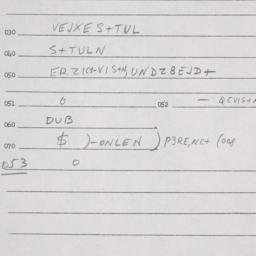 030 VEJXES+TUL
040 S+TULN
050 ERZICH-VIS+N,UNDZBEJD+
051 0 052 — QCVIS+N
060 DUB
070 $ )-ONLEN ) P3RE,NC+ (008
053 0